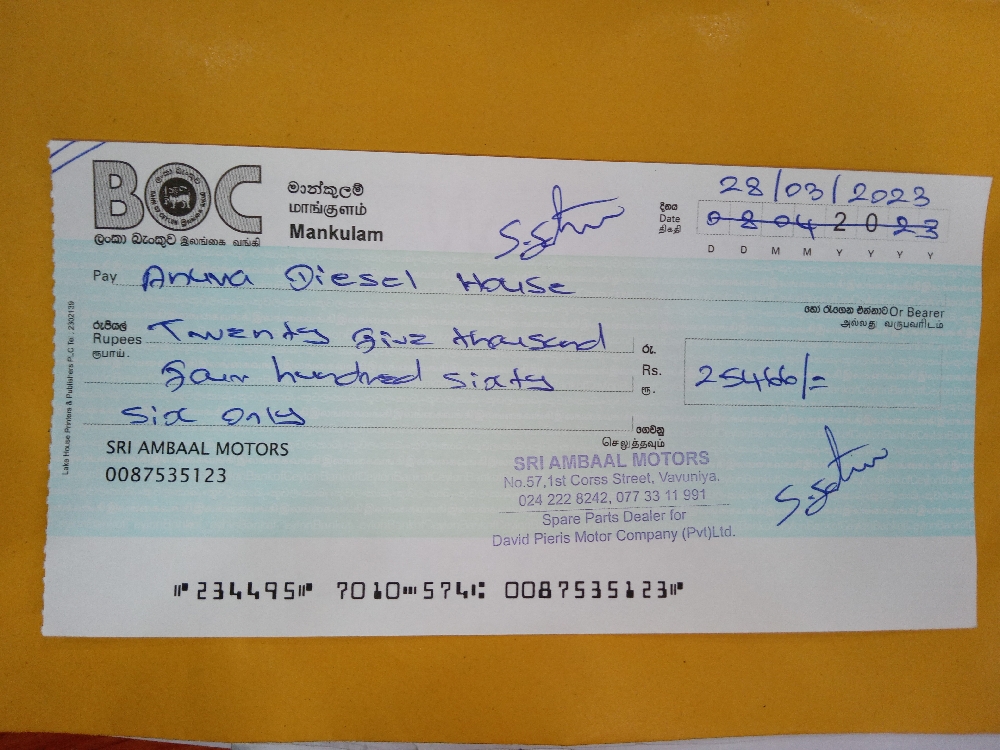 BOC
ලංකා බැංකුව இலங்கை வங்கி
මාන්කුලම්
மாங்குளம்
Mankulam
28/03/2023
දිනය
Date
திகதி
08 04 2023
D D M M Y Y Y Y
Pay Anura Diesel House
හෝ රැගෙන එන්නාට Or Bearer
அல்லது வருபவரிடம்
රුපියල්
Rupees Twenty five thousand
ரூபாய்.
four hundred sixty
six only
රු.
Rs. 25466/=
ரூ.
ගෙවනු
செலுத்தவும்
SRI AMBAAL MOTORS
0087535123
SRI AMBAAL MOTORS
No.57,1st Corss Street, Vavuniya.
024 222 8242, 077 33 11 991
Spare Parts Dealer for
David Pieris Motor Company (Pvt)Ltd.
Lake House Printers & Publishers PLC Te : 2302139
⑈234495⑈ 7010⑉574⑆ 0087535123⑈